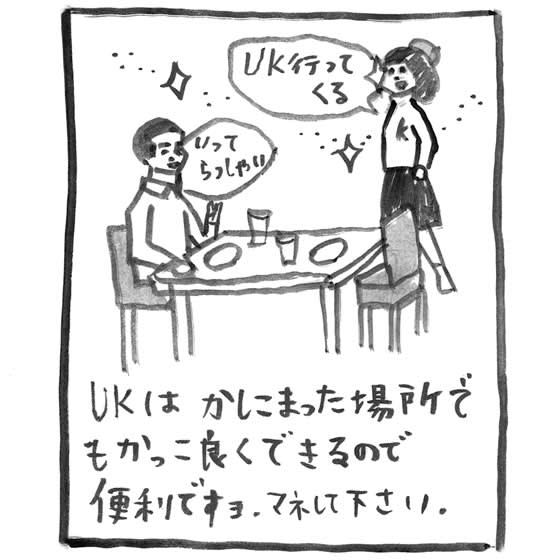 UK行って
くる
いって
らっしゃい
K
UKは かしこまった場所で
もかっこ良くできるので
便利ですョ.マネして下さい.